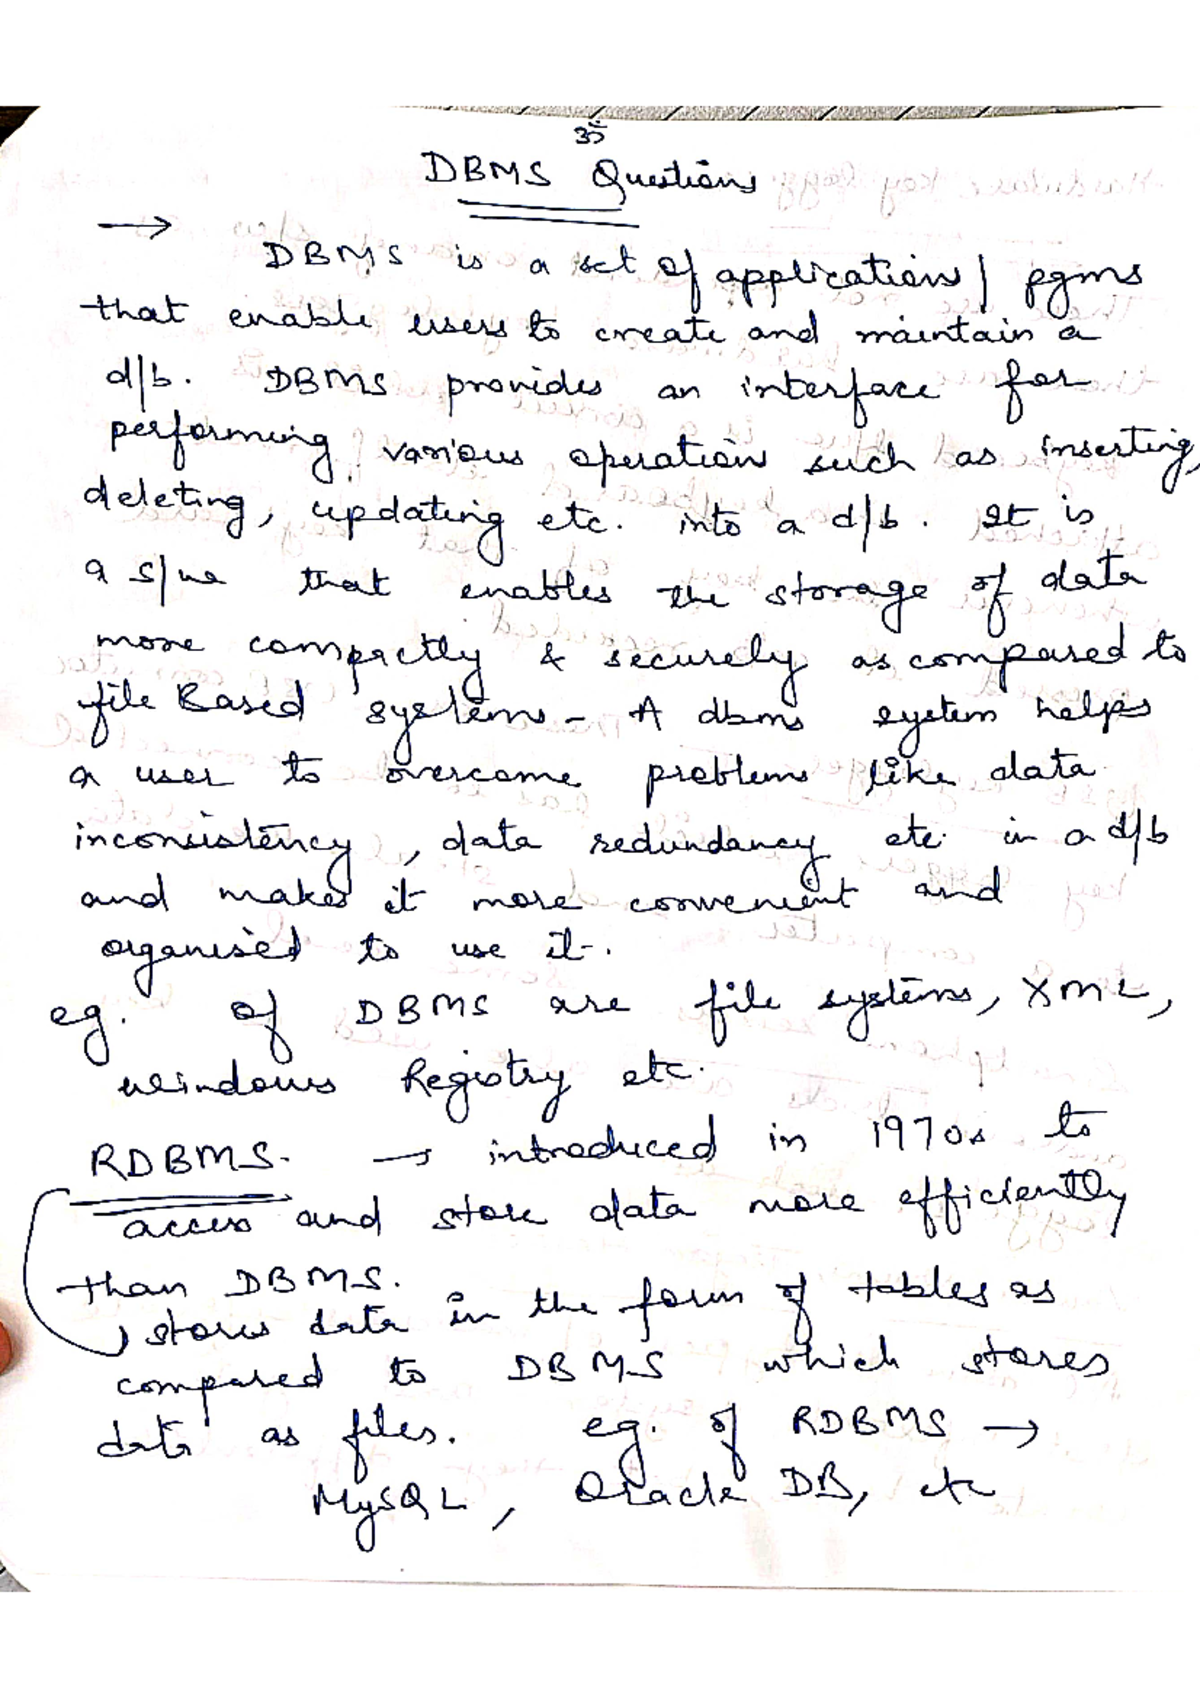 ॐ
DBMS Questions
→ DBMS is a set of applications/ pgms
that enable users to create and maintain a
d/b. DBMS provides an interface for
performing various operations such as inserting,
deleting, updating etc. into a d/b. It is
a s/w that enables the storage of data
more compactly & securely as compared to
file Based systems - A dbms system helps
a user to overcome problems like data
inconsistency, data redundancy etc. in a d/b
and makes it more convenient and
organised to use it.
eg. of DBMS are file systems, XML,
Windows Registry etc.
RDBMS. → introduced in 1970s to
access and store data more efficiently
than DBMS.
→ stores data in the form of tables as
compared to DBMS which stores
data as files. eg. of RDBMS →
MySQL, Oracle DB, etc